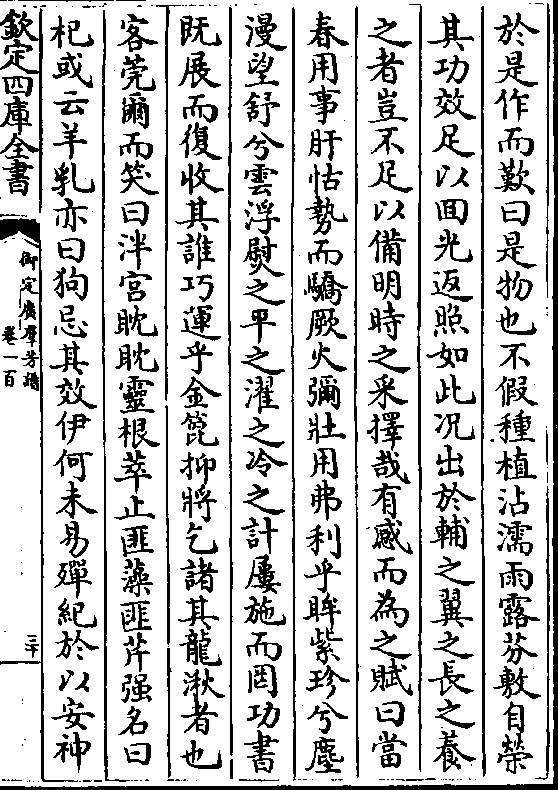 於是作而歎曰是物也不假種植沾濡雨露芬敷自榮
其功效足以回光返照如此况出於輔之翼之長之養
之者豈不足以備明時之采擇哉有感而為之賦曰當
春用事肝怙勢而驕厥火彌壯用弗利乎眸紫珍兮塵
漫望舒兮雲浮熨之平之濯之冷之計屢施而罔功書
既展而復收其誰巧運乎金篦抑將乞諸其龍湫者也
客莞爾而笑曰泮宮眈眈靈根萃止匪薻匪芹强名曰
杞或云羊乳亦曰狗忌其效伊何未易殫紀於以安神
欽定四庫全書
御定廣羣芳譜
卷一百
三十